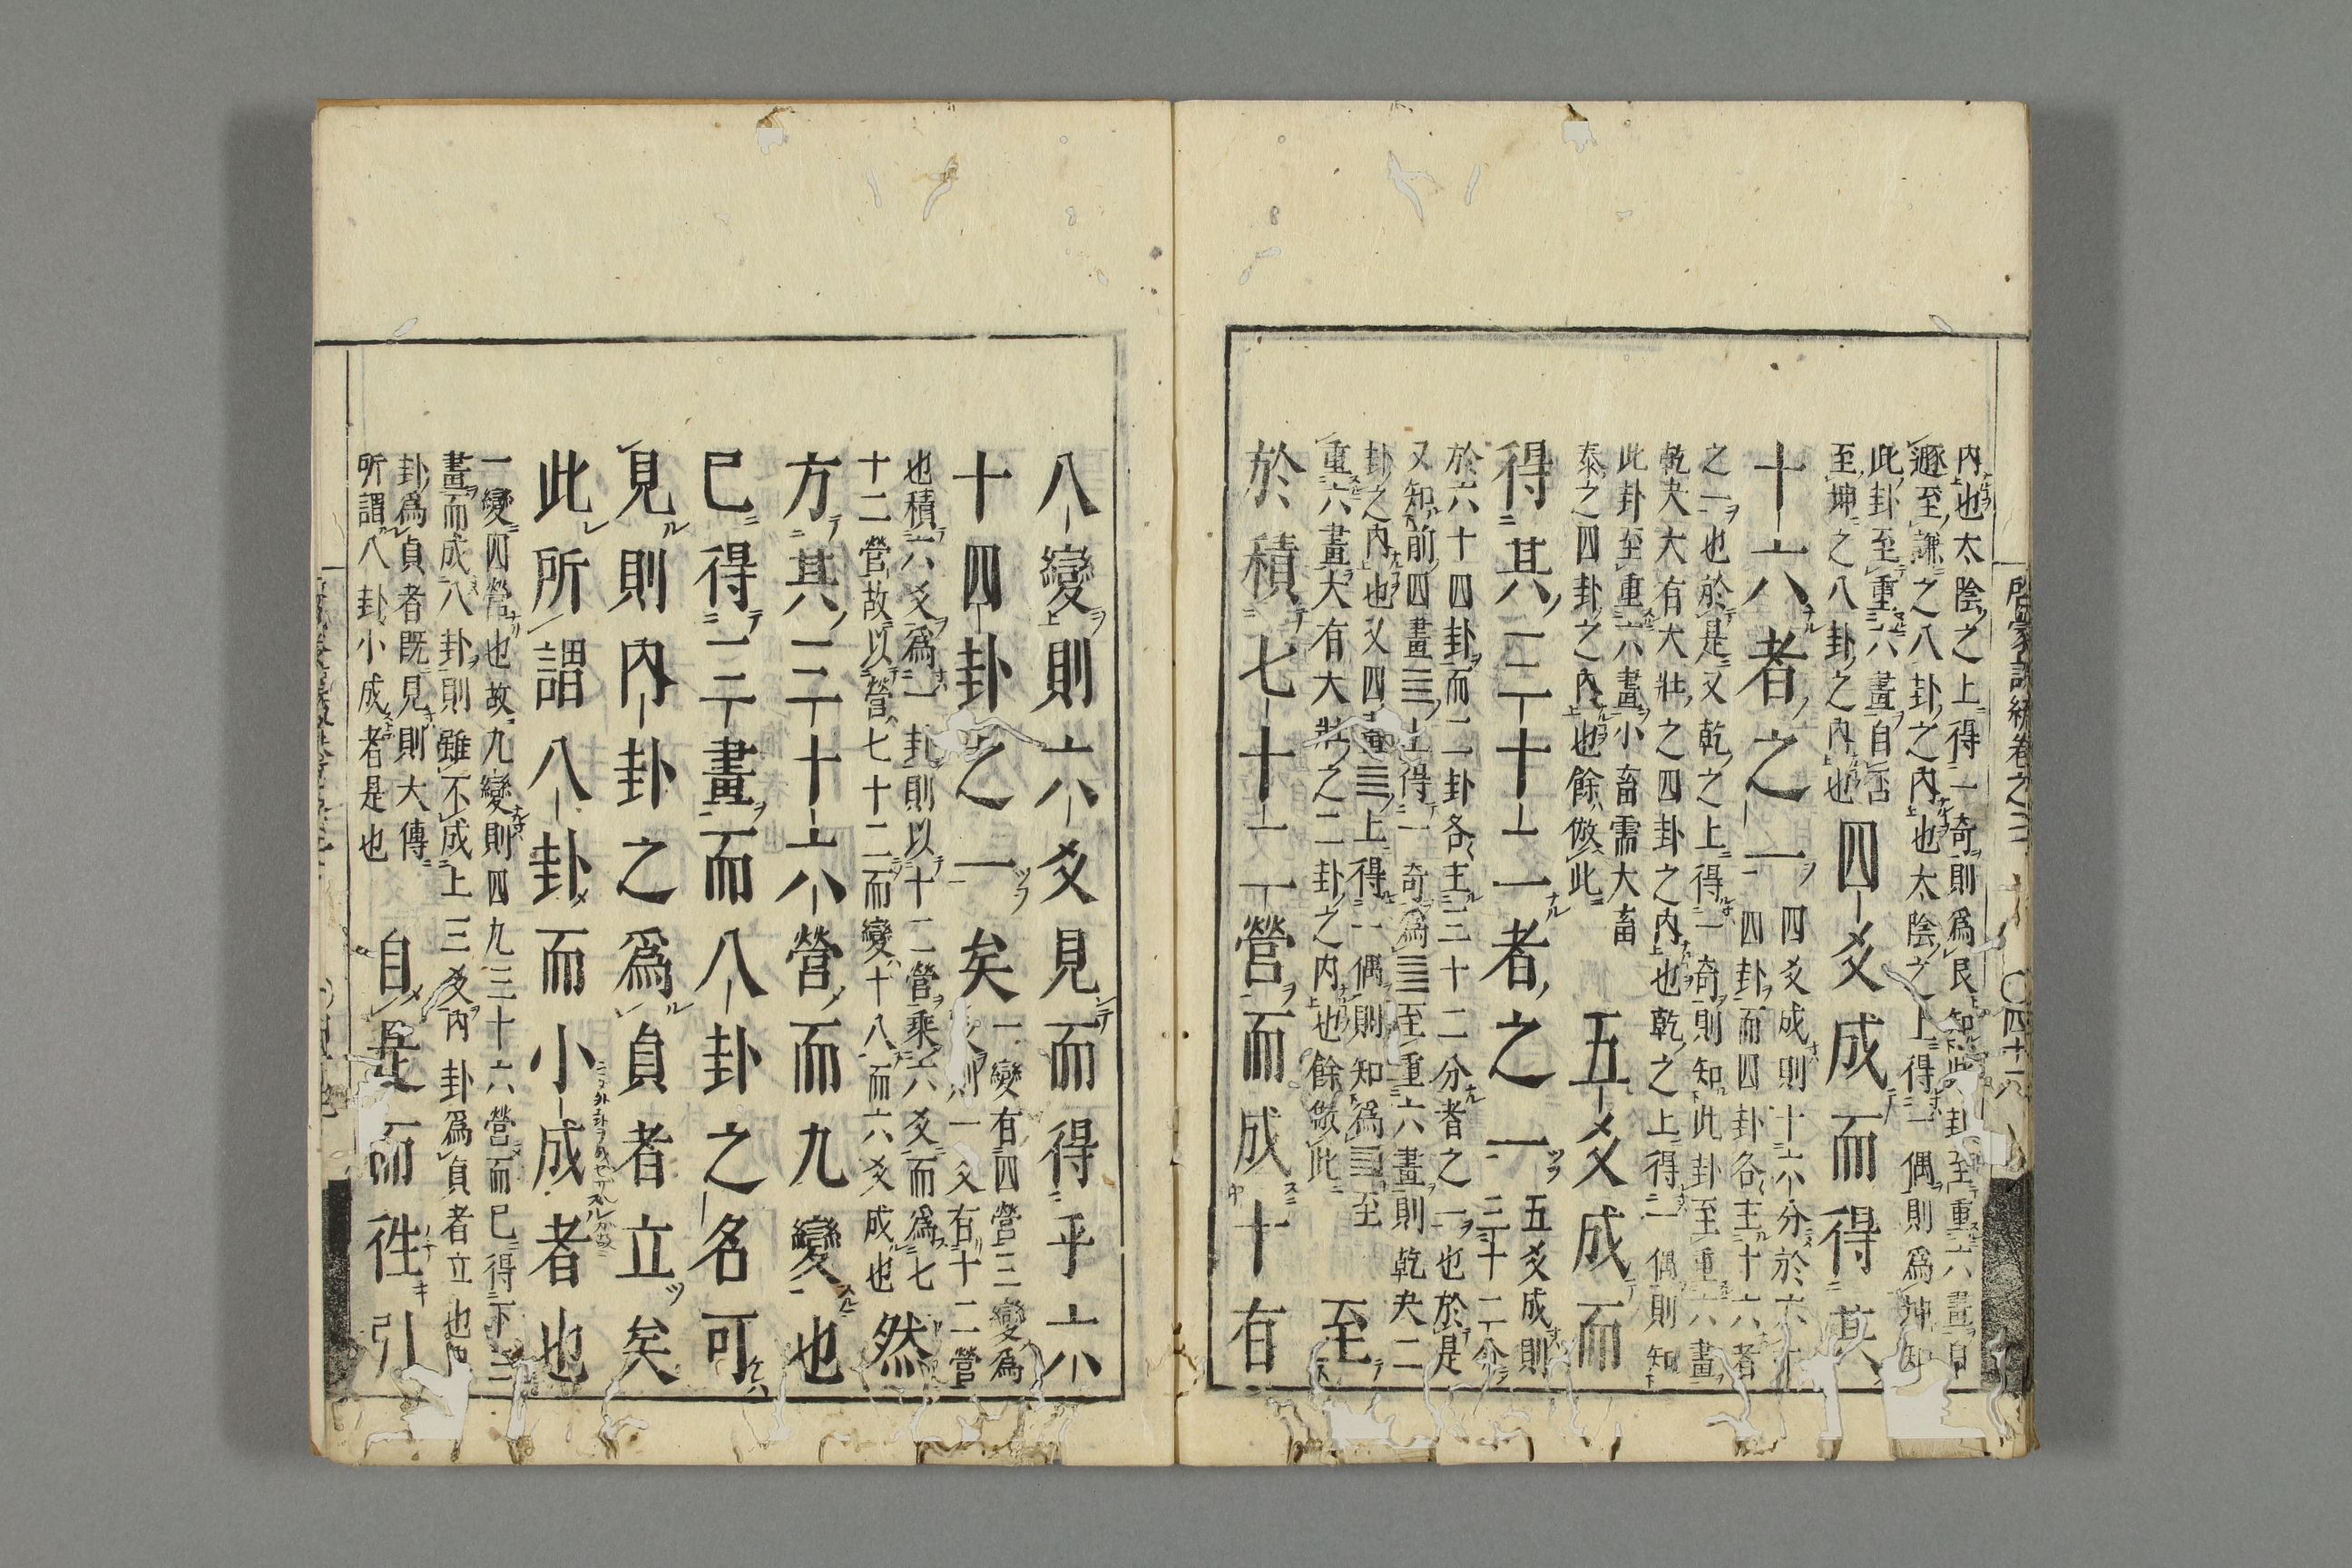 啓蒙 卷之三 〇四十六
內也太陰之上得一奇則爲艮知此卦至重六畫自
遯至謙之八卦之內也太陰之上得一偶則爲坤知
此卦至重六畫自否
至坤之八卦之內也
四爻成而得其
十六者之一
四爻成則十六分於六十
四卦而四卦各主十六者
之一也於是又乾之上得一奇則知此卦至重六畫
乾夬大有大壯之四卦之內也乾之上得一偶則知
此卦至重六畫小畜需大畜
泰之四卦之內也餘倣此
五爻成而
得其三十二者之一
五爻成則
三十二分
於六十四卦而二卦各主三十二分者之一也於是
又知前四畫☰上得一奇爲至重六畫則乾夬二
卦之內也又四畫上得一偶則知爲至
重六畫大有大壯之二卦之內也餘倣此
至
於積七十二營而成十有
八變則六爻見而得乎六
十四卦之一矣
一變有四營三變爲
則一爻右十二營
也積六爻爲一卦則以十二營乘六爻而爲七
十二營故以營七十二而變十八而六爻成也
然
方其三十六營而九變也
已得三畫而八卦之名可
見則內卦之爲貞者立矣
此所謂八卦而小成者也
一變四營也故九變則四九三十六營而已得下三
畫而成八卦則雖不成上三爻內卦爲貞者立也
卦爲貞者既見則大傳
所謂八卦小成者是也
自是而徃引